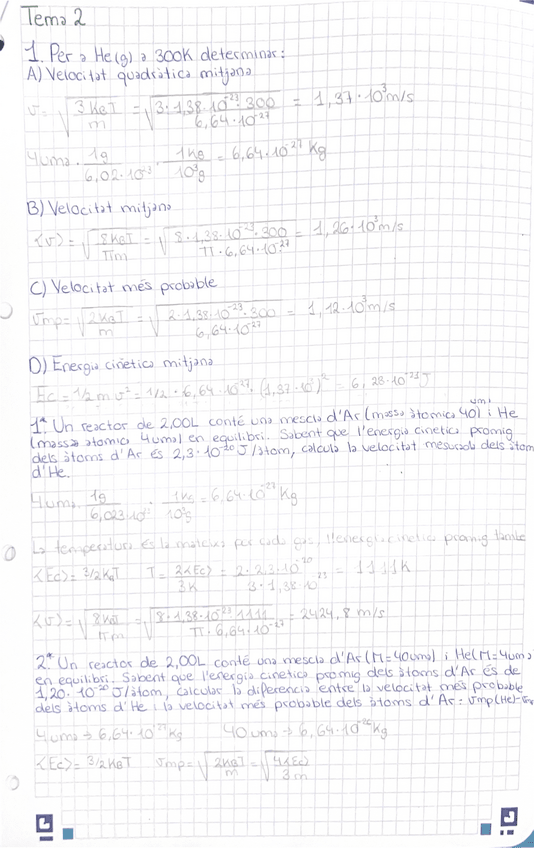 Tema 2
1. Per a He(g) a 300K determinar:
A) Velocitat quadràtica mitjana
v = √(3KBT/m) = √(3·1,38·10⁻²³·300/6,64·10⁻²⁷) = 1,37·10³m/s
4uma · 1g/6,02·10²³ · 1Kg/10³g = 6,64·10⁻²⁷ Kg
B) Velocitat mitjana
⟨v⟩ = √(8KBT/πm) = √(8·1,38·10⁻²³·300/π·6,64·10⁻²⁷) = 1,26·10³m/s
C) Velocitat més probable
vmp = √(2KBT/m) = √(2·1,38·10⁻²³·300/6,64·10⁻²⁷) = 1,12·10³m/s
D) Energia cinètica mitjana
Ec = 1/2 m v² = 1/2 · 6,64·10⁻²⁷ · (1,37·10³)² = 6,28·10⁻²¹J
1* Un reactor de 2,00L conté una mescla d'Ar (massa atòmica 40 uma) i He
(massa atòmica 4uma) en equilibri. Sabent que l'energia cinètica promig
dels àtoms d'Ar és 2,3·10⁻²⁰ J/àtom, calcula la velocitat mesurada dels àtom
d'He.
4uma · 1g/6,023·10²³ · 1Kg/10³g = 6,64·10⁻²⁷Kg
La temperatura és la mateixa per cada gas, l'energia cinètica promig també
⟨Ec⟩ = 3/2KBT T = 2⟨Ec⟩/3K = 2·2,3·10⁻²⁰/3·1,38·10⁻²³ = 1111K
⟨v⟩ = √(8KBT/πm) = √(8·1,38·10⁻²³·1111/π·6,64·10⁻²⁷) = 2424,8 m/s
2* Un reactor de 2,00L conté una mescla d'Ar (M=40uma) i He (M=4uma)
en equilibri. Sabent que l'energia cinètica promig dels àtoms d'Ar és de
1,20·10⁻²⁰ J/àtom, calcular la diferència entre la velocitat més probable
dels àtoms d'He i la velocitat més probable dels àtoms d'Ar = vmp(He)-
4uma → 6,64·10⁻²⁷Kg 40uma → 6,64·10⁻²⁶Kg
⟨Ec⟩ = 3/2KBT vmp = √(2KBT/m) = √(4⟨Ec⟩/3m)